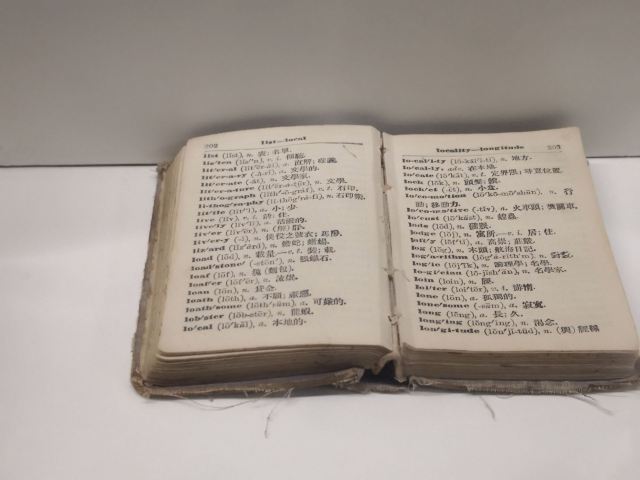 202 list—local
list (lĭst), n. 表; 名單.
lis'ten (lĭs''n) v. i.
lit'er-al (lĭt'ẽr-ăl), a.
lit'er-a-ry (-å-rĭ), a. 文學的.
lit'er-ate (-ât), n. 文學家.
lit'er-a-ture (lĭt'ẽr-å-tûr), n. 文學.
lith'o-graph (lĭth'-ō-gráf), v. t. 石印.
li-thog'ra-phy (lĭ-thŏg'rå-fĭ), n. 石印術.
lit'tle (lĭt''l), a. 小; 少.
live (lĭv), v. i. 住.
live'ly (līv'lĭ), a.
liv'er (lĭv'ẽr), n. 肝.
liv'er-y (-ĭ), n.
liz'ard (lĭz'ẽrd), n.
load (lōd), n. 載量.—v. t. 裝; 載.
load'stone' (-stōn'), n. 磁石.
loaf (lōf), n. 塊 (麵包).
loaf'er (lōf'ẽr), n.
loan (lōn), n.
loath (lōth), a. 不願;
loath'some (lōth'sŭm), a. 可嫌的.
lob'ster (lŏb-stẽr), n. 龍蝦.
lo'cal (lō'kăl), a. 本地的.
locality—longitude 203
lo-cal'i-ty (lō-kăl'ĭ-tĭ), n. 地方.
lo'cal-ly, adv. 在本地.
lo'cate (lō'kāt), v. t. 定界限; 尋覓位置.
lock (lŏk), n. 頭髮; 鎖.
lock'et (-ĕt), n. 小盒.
lo'co-mo'tion (lō'kō-mō'shŭn), n. 行
動; 移動力.
lo'co-mo'tive (-tĭv), a. 火車頭; 機關車.
lo'cust (lō'kŭst), n. 蝗蟲.
lode (lōd), n.
lodge (lŏj), n. 寓所.—v. i. 居; 住.
loft'y (lŏf'tĭ), a. 高崇; 莊嚴.
log (lŏg), n. 木頭; 航海日記.
log'a-rithm (lŏg'å-rĭth'm) n. 對數.
log'ic (lŏj'ĭk), n. 論理學; 名學.
lo-gi'cian (lō-jĭsh'ăn), n. 名學家.
loin (loin), n. 腰.
loi'ter (loi'tẽr), v. i.
lone (lōn), a. 孤獨的.
lone'some (-sŭm), a. 寂寞.
long (lŏng), a. 長; 久.
long'ing (lŏng'ĭng), n. 渴念.
lon'gi-tude (lŏn'jĭ-tūd), n. (輿) 經線